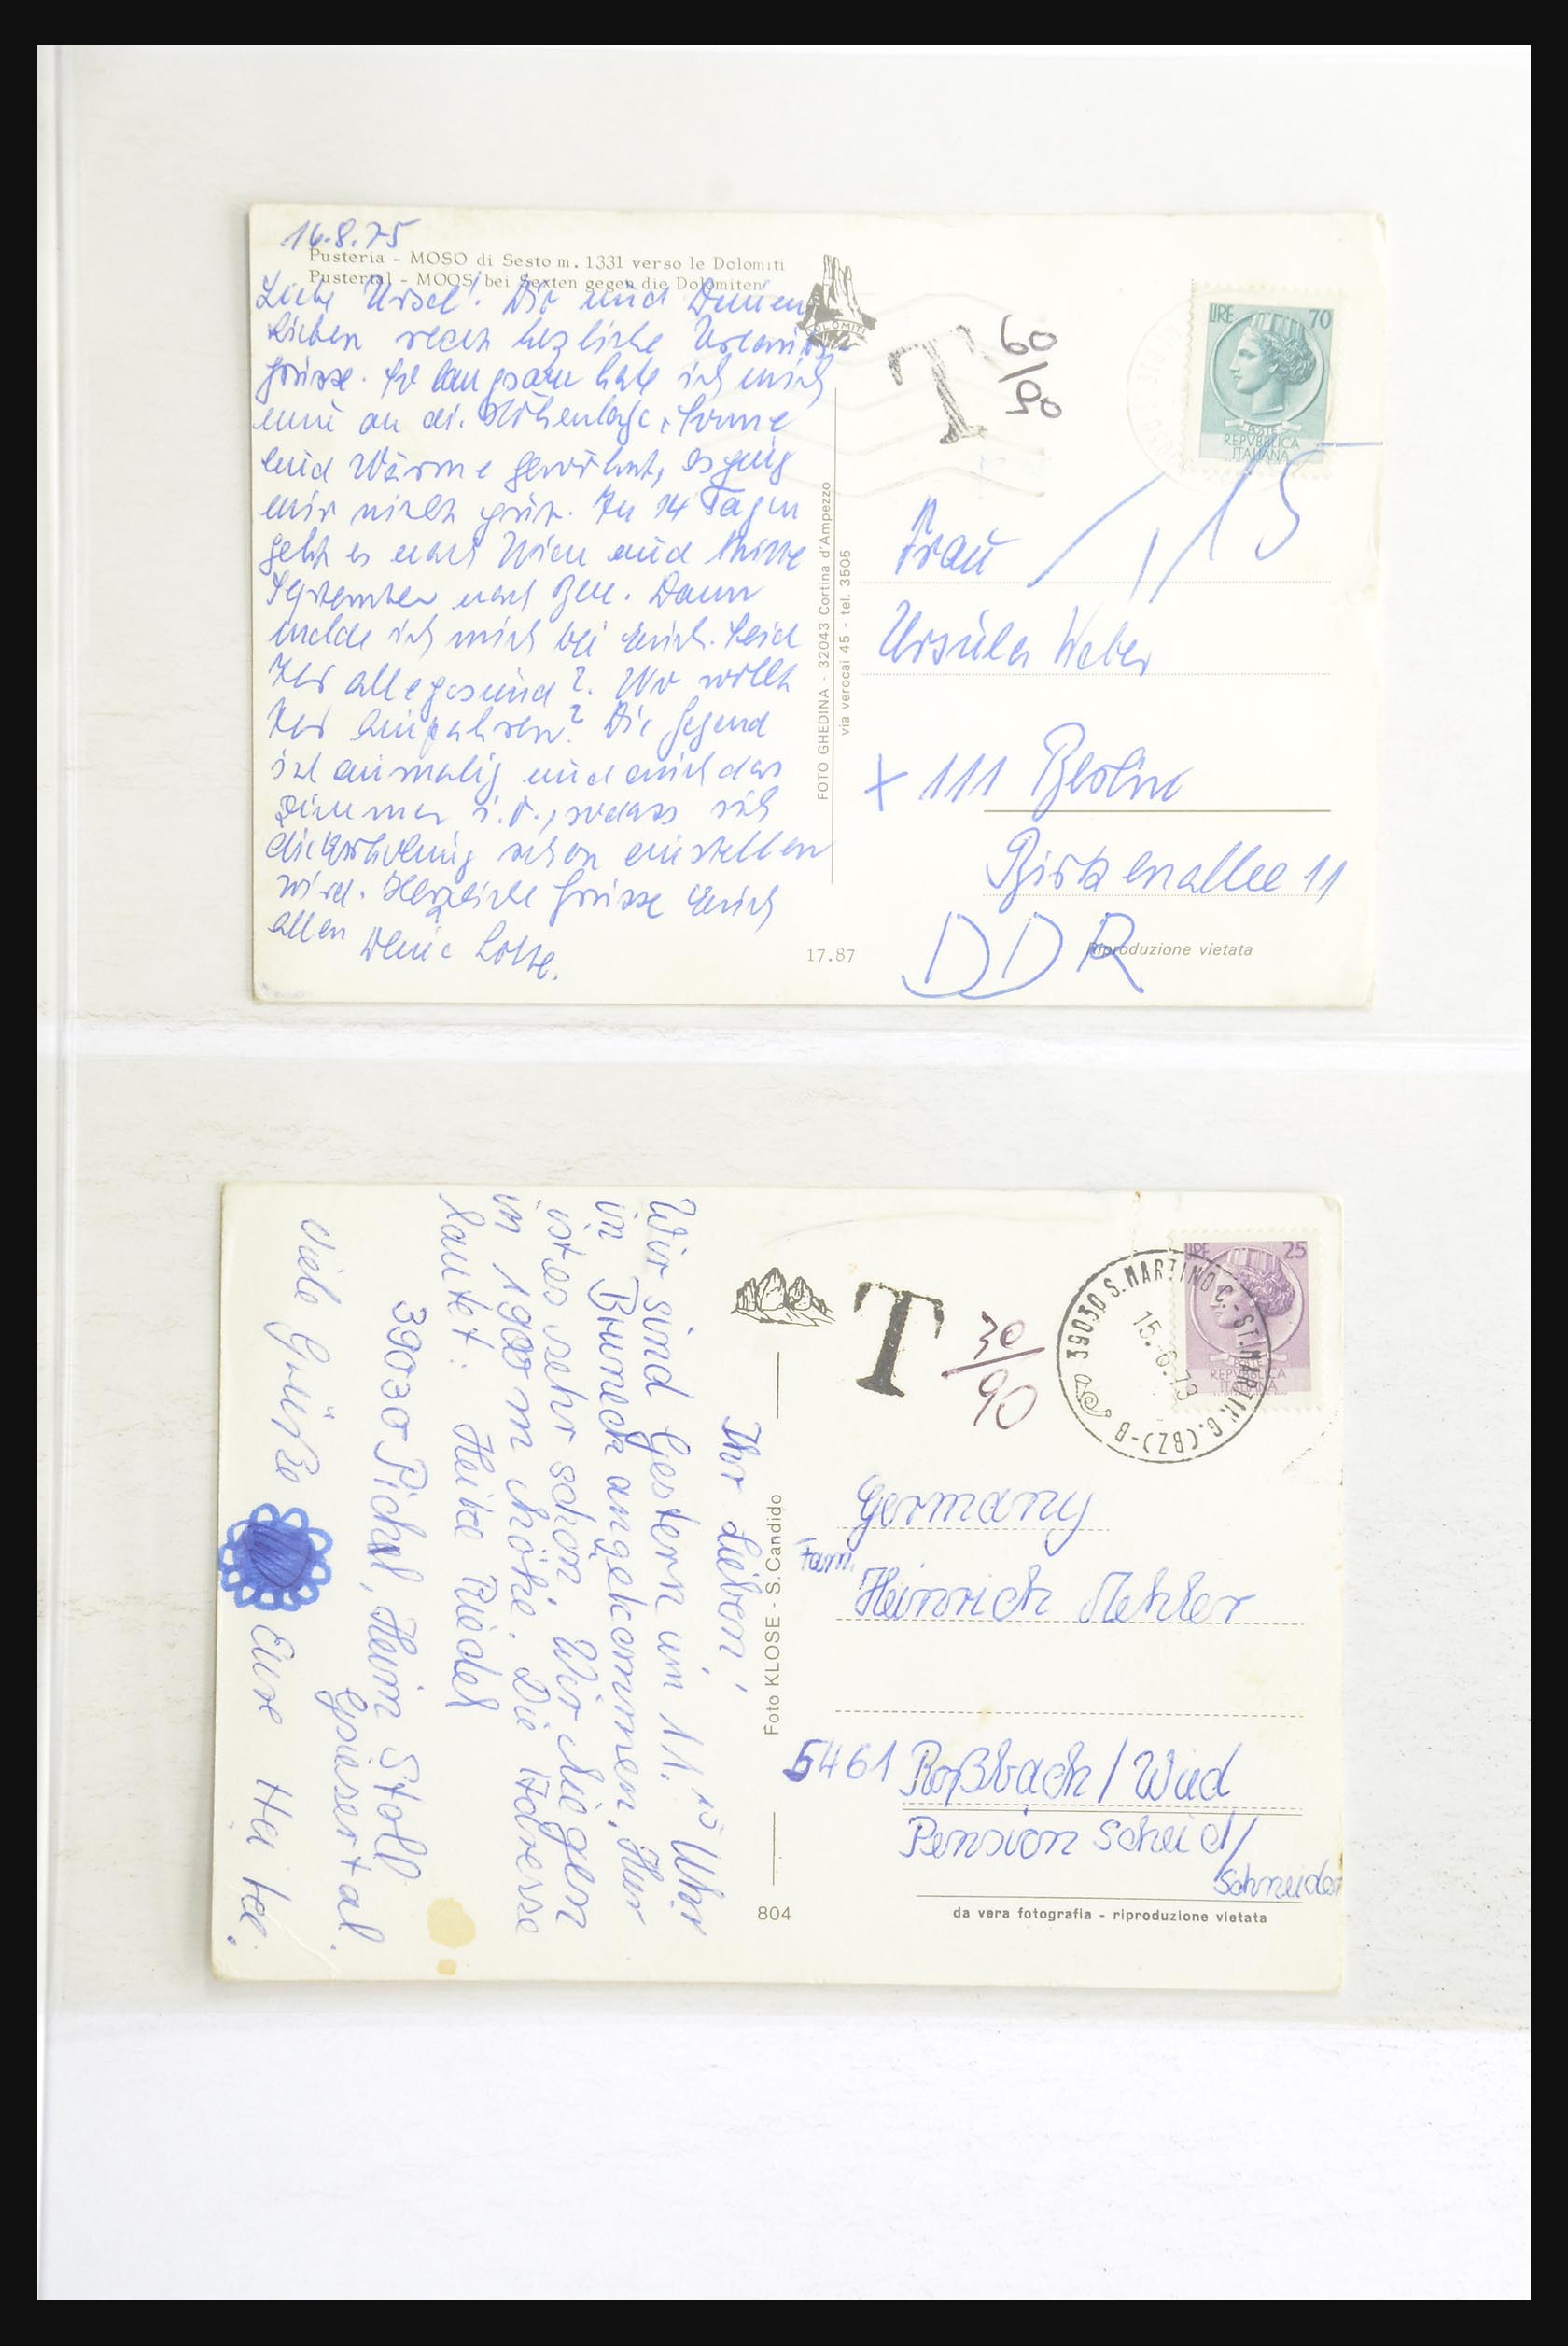 16.8.75
Pusteria - MOSO di Sesto m. 1331 verso le Dolomiti
Pustertal - MOOS bei Sexten gegen die Dolomiten
Liebe Ursel! Dir und Deinen
Lieben recht herzliche Urlaubs
grüsse. So langsam habe ich mich
nun an die Höhenlage, Sonne
und Wärme gewöhnt, es ging
mir nicht gut. In 14 Tagen
geht es nach Wien und Mitte
September nach Bln. Dann
melde ich mich bei Euch. Seid
Ihr alle gesund? Wo wollt
Ihr hinfahren? Die Gegend
ist einmalig und auch das
Zimmer i.O., sodass sich
die Erholung schon einstellen
wird. Herzliche Grüsse Euch
allen Deine Lotte.
DOLOMITI
T
60/90
LIRE 70
POSTE
REPVBBLICA
ITALIANA
FOTO GHEDINA - 32043 Cortina d'Ampezzo
via verocai 45 - tel. 3505
15
Frau
Ursula Weber
X 111 Berlin
Birkenallee 11
DDR
Riproduzione vietata
17.87
Ihr Lieben!
Wir sind Gestern um 11.15 Uhr
in Bruneck angekommen. Hier
ist es sehr schön. Wir liegen
in 1900 m Höhe. Die Adresse
lautet: Heike Riedel
39030 Pichl, Heim Stoll
Gsiesertal.
Viele Grüße
Eure Heike.
T
30/90
LIRE 25
REPVBBLICA
ITALIANA
39030 S. MARTINO C. - ST. MARTIN G. (BZ) - B
15. 73
Foto KLOSE - S. Candido
Germany
Fam.
Heinrich Mehler
5461 Roßbach / Wied
Pension Scheid /
Schneider
804
da vera fotografia - riproduzione vietata